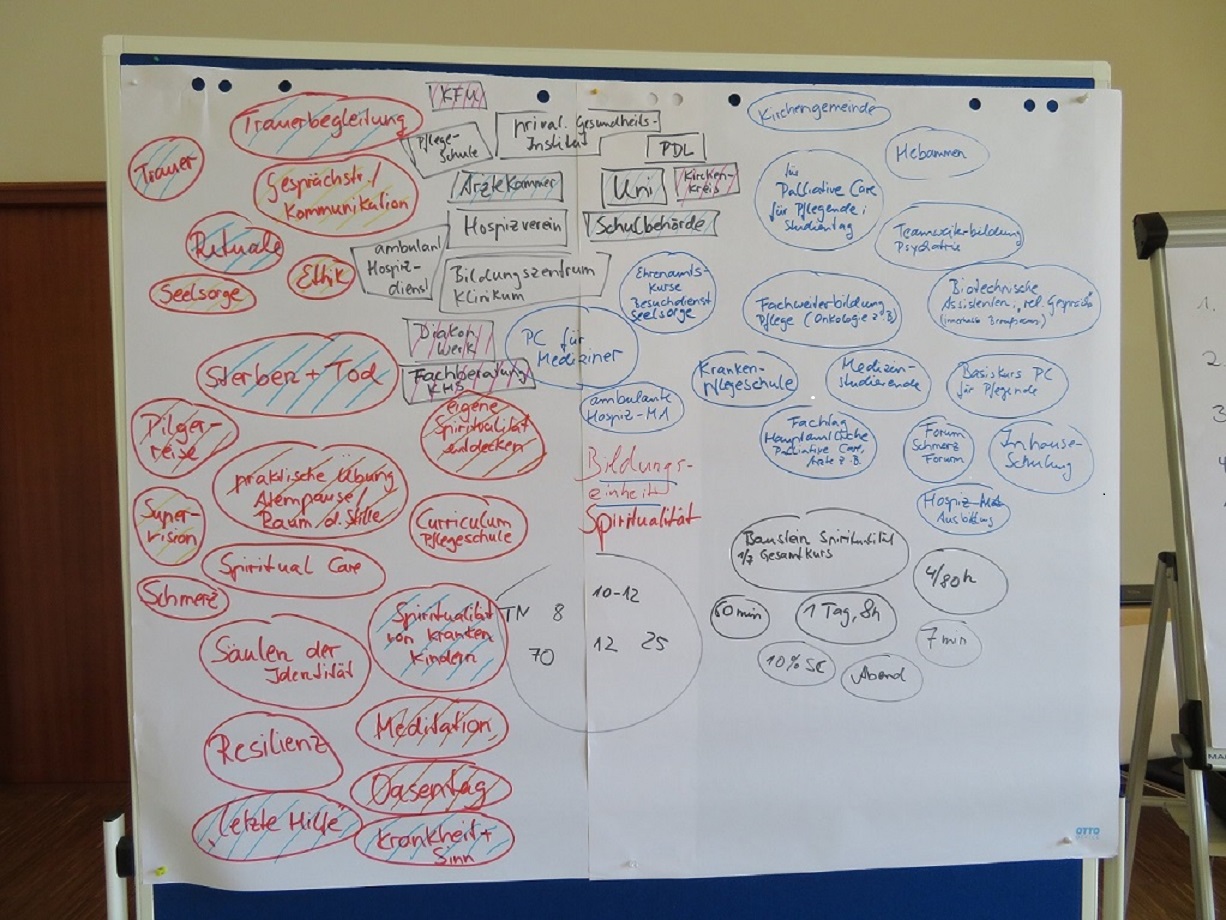 Trauerbegleitung
Trauer
Gesprächstr./
Kommunikation
Rituale
Ethik
Seelsorge
Sterben + Tod
Pilger-
reise
praktische Übung
Atempause/
Raum d. Stille
Super-
vision
Spiritual Care
Schmerz
Säulen der
Identität
Resilienz
Letzte Hilfe
eigene
Spiritualität
entdecken
Curriculum
Pflegeschule
Spiritualität
von kranken
Kindern
Meditation
Oasentag
Krankheit +
Sinn
KFM
Pflege-
Schule
privat. Gesundheits-
Institut
PDL
Ärztekammer
Uni
Kirchen-
kreis
Hospizverein
Schulbehörde
ambulant
Hospiz-
dienst
Bildungszentrum
Klinikum
Diakon.
Werk
Fachberatung
KHS
Bildungs-
einheit
Spiritualität
TN 8
10-12
70
12 25
Kirchengemeinde
Hebammen
Palliative Care
für Pflegende:
Studientag
Teamweiterbildung
Psychiatrie
Ehrenamts-
Kurse
Besuchdienst
Seelsorge
Fachweiterbildung
Pflege (Onkologie z.B.)
Biotechnische
Assistenten, rel. Gespräch
PC für
Mediziner
Kranken-
pflegeschule
Medizin-
studierende
Basiskurs PC
für Pflegende
ambulante
Hospiz-MA
Fachtag
Hauptamtliche
Palliative Care,
Ärzte z.B.
Forum
Schmerz
Forum
Inhouse-
Schulung
Hospiz MA
Ausbildung
Baustein Spiritualität
1/7 Gesamtkurs
4/80h
60 min
1 Tag, 8h
7 min
10% SC
Abend
OTTO
1.
2.
3
4
MA